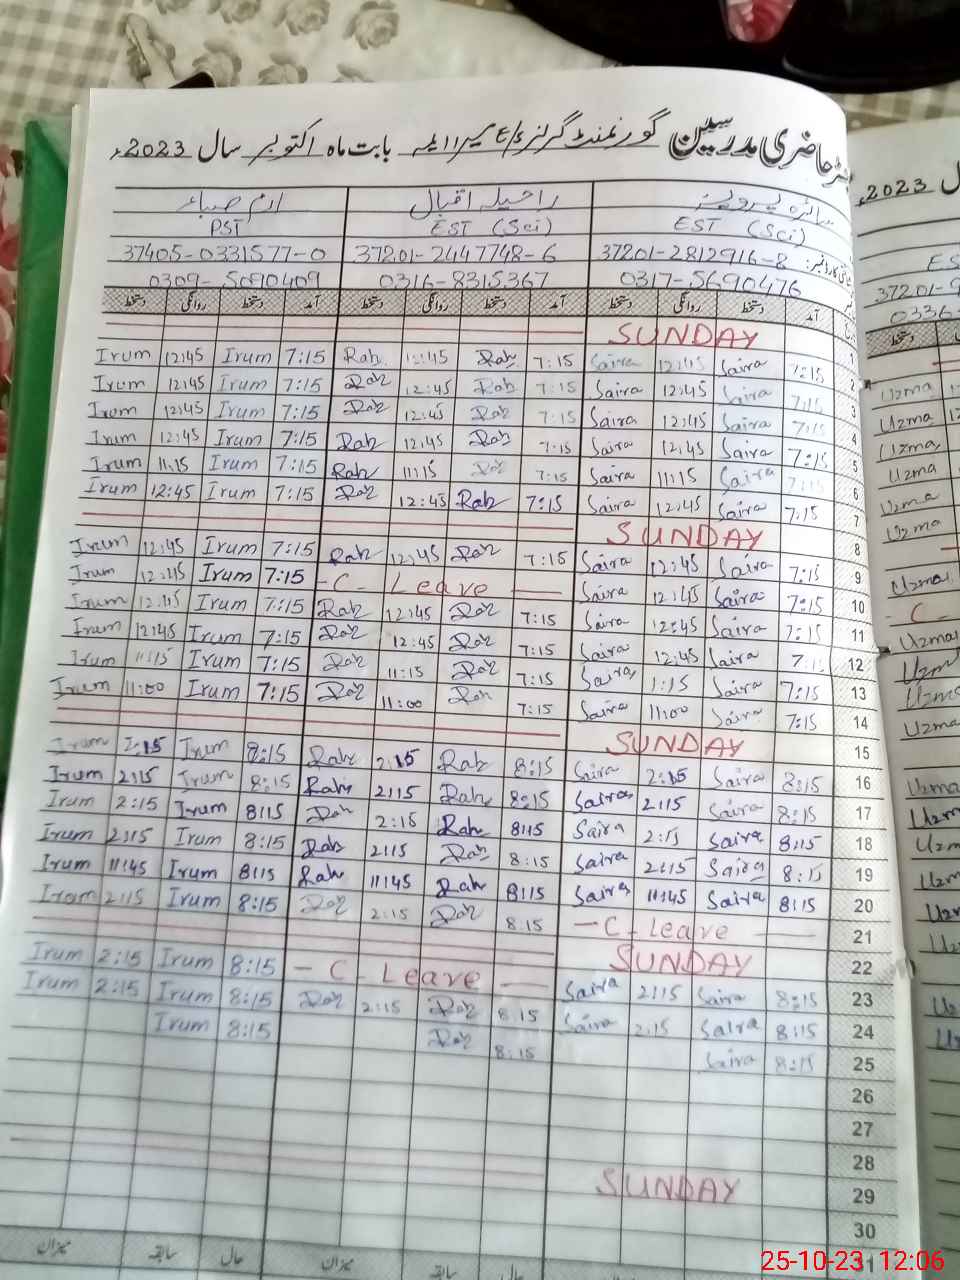 رجسٹر حاضری مدرسین گورنمنٹ گرلز بابت ماہ اکتوبر سال 2023ء
سائرہ پرویز راحیلہ اقبال ارم صباء
EST (Sci) EST (Sci) PST
37201-2812916-8 37201-2447748-6 37405-0331577-0
0317-5690476 0316-8315367 0309-5090409
آمد دستخط روانگی دستخط آمد دستخط روانگی دستخط آمد دستخط روانگی دستخط
SUNDAY 1
Irum 12:45 Irum 7:15 Rah 12:45 Rah 7:15 Saira 12:45 Saira 7:15 2
Irum 12:45 Irum 7:15 Rah 12:45 Rah 7:15 Saira 12:45 Saira 7:15 3
Irum 12:45 Irum 7:15 Rah 12:45 Rah 7:15 Saira 12:45 Saira 7:15 4
Irum 12:45 Irum 7:15 Rah 12:45 Rah 7:15 Saira 12:45 Saira 7:15 5
Irum 11:15 Irum 7:15 Rah 11:15 Rah 7:15 Saira 11:15 Saira 7:15 6
Irum 12:45 Irum 7:15 Rah 12:45 Rah 7:15 Saira 12:45 Saira 7:15 7
SUNDAY 8
Irum 12:45 Irum 7:15 Rah 12:45 Rah 7:15 Saira 12:45 Saira 7:15 9
Irum 12:45 Irum 7:15 - C - Leave Saira 12:45 Saira 7:15 10
Irum 12:45 Irum 7:15 Rah 12:45 Rah 7:15 Saira 12:45 Saira 7:15 11
Irum 12:45 Irum 7:15 Rah 12:45 Rah 7:15 Saira 12:45 Saira 7:15 12
Irum 11:15 Irum 7:15 Rah 11:15 Rah 7:15 Saira 1:15 Saira 7:15 13
Irum 11:00 Irum 7:15 Rah 11:00 Rah 7:15 Saira 11:00 Saira 7:15 14
SUNDAY 15
Irum 2:15 Irum 8:15 Rah 2:15 Rah 8:15 Saira 2:15 Saira 8:15 16
Irum 2:15 Irum 8:15 Rah 2:15 Rah 8:15 Saira 2:15 Saira 8:15 17
Irum 2:15 Irum 8:15 Rah 2:15 Rah 8:15 Saira 2:15 Saira 8:15 18
Irum 2:15 Irum 8:15 Rah 2:15 Rah 8:15 Saira 2:15 Saira 8:15 19
Irum 11:45 Irum 8:15 Rah 11:45 Rah 8:15 Saira 11:45 Saira 8:15 20
Irum 2:15 Irum 8:15 Rah 2:15 Rah 8:15 - C - Leave 21
SUNDAY 22
Irum 2:15 Irum 8:15 - C - Leave Saira 2:15 Saira 8:15 23
Irum 2:15 Irum 8:15 Rah 2:15 Rah 8:15 Saira 2:15 Saira 8:15 24
Irum 8:15 Rah 8:15 Saira 8:15 25
26
27
28
SUNDAY 29
30
31
میزان سابقہ حال میزان سابقہ حال
2023ء
37201-9
0336-
دستخط
Uzma
Uzma 12
Uzma
Uzma
Uzma
Uzma
Uzma
- C -
Uzma
Uzma
Uzma
Uzma
Uzma
Uzma
Uzma
Uzma
Uzma
25-10-23 12:06